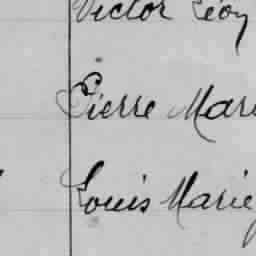 Victor Léon
Pierre Mari
Louis Marie